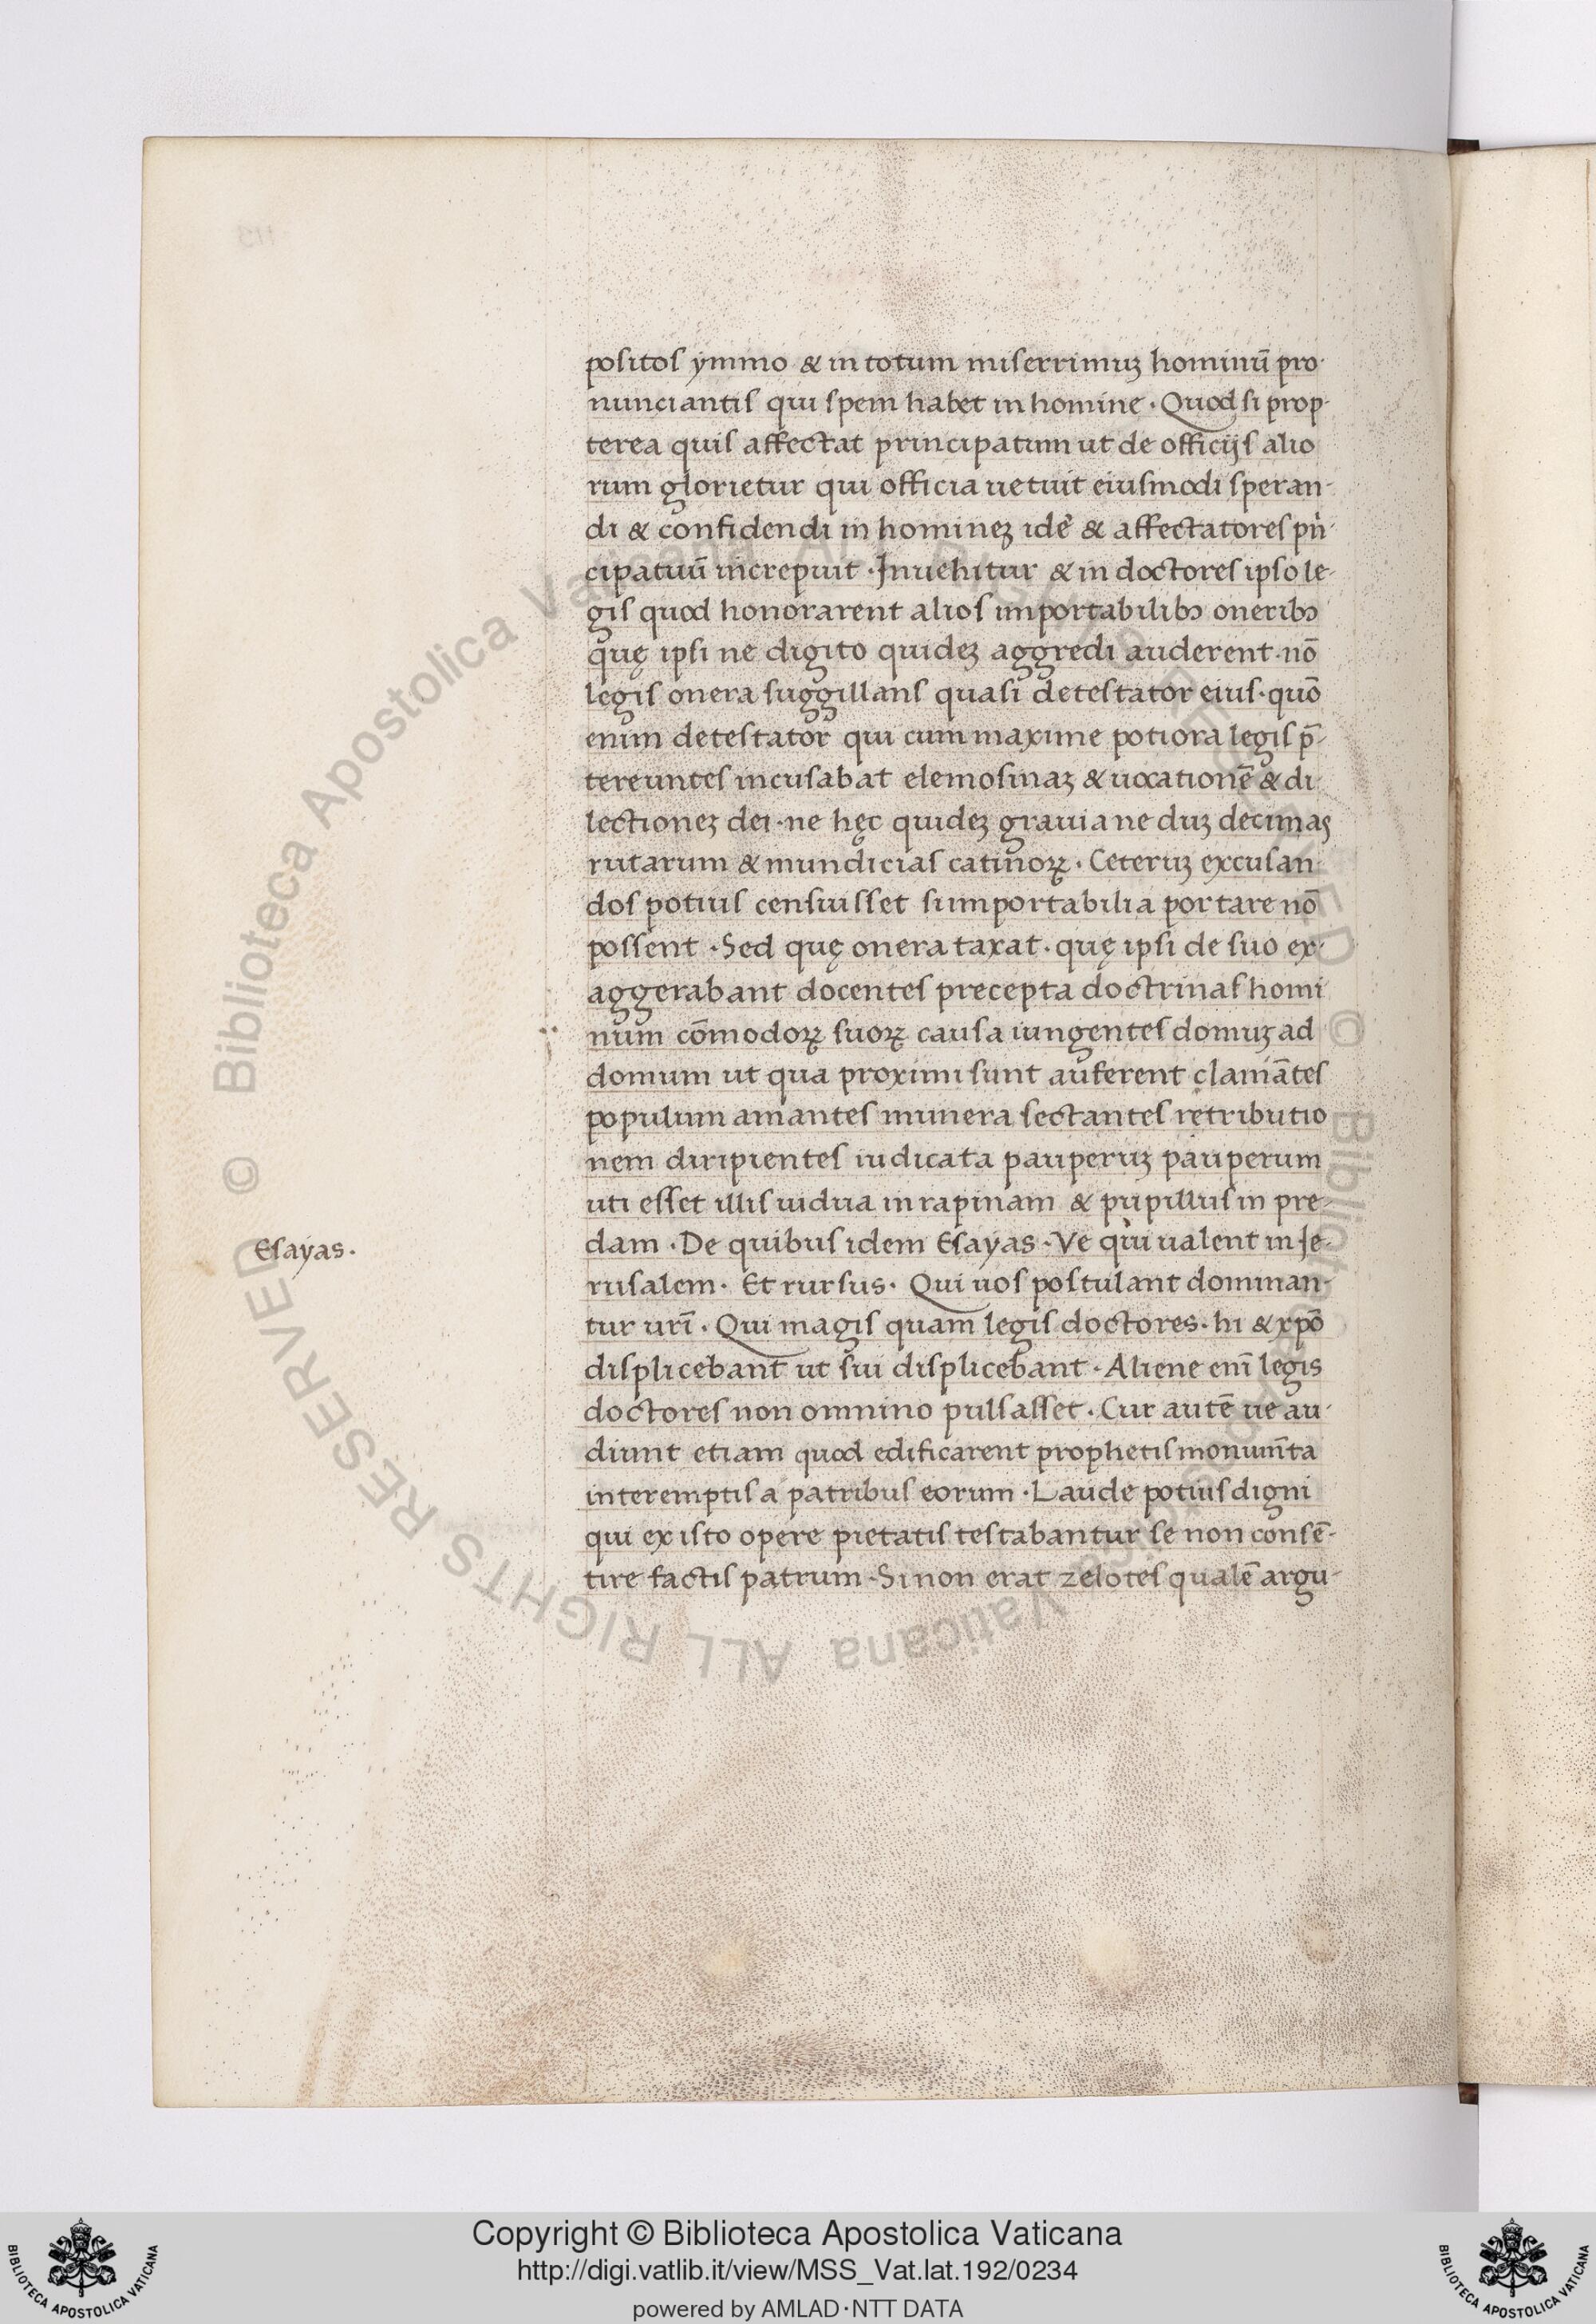 positos ymmo & in totum miserrimuꝫ hominū pro-
nunciantis qui spem habet in homine · Quod si prop-
terea quis affectat principatum ut de officijs alio
rum glorietur qui officia uetuit eiusmodi speran-
di & confidendi in homineꝫ idē & affectatores prī-
cipatuū increpuit · Inuehitur & in doctores ipso le-
gis quod honorarent alios importabilibꝫ oneribꝫ
quę ipsi ne digito quideꝫ aggredi auderent · nō
legis onera suggillans quasi detestator eius · quō
enim detestator qui cum maxime potiora legis p̄-
tereuntes incusabat elemosinaꝫ & uocationē & di
lectioneꝫ dei · ne hęc quideꝫ grauia ne duꝫ decimas
rutarum & mundicias catinoꝝ · Ceteruꝫ excusan-
dos potius censuisset si importabilia portare nō
possent · Sed quę onera taxat · quę ipsi de suo ex-
aggerabant docentes precepta doctrinas homi
num cōmodoꝝ suoꝝ causa iungentes domuꝫ ad
domum ut qua proximi sunt auferent clamātes
populum amantes munera sectantes retributio
nem diripientes iudicata pauperuꝫ pauperum
uti esset illis uidua in rapinam & pupillus in pre-
Esayas.
dam · De quibus idem Esayas · Ve qui ualent in Je-
rusalem · Et rursus · Qui uos postulant dominan-
tur urī · Qui magis quam legis doctores · hi & xpō
displicebant ut sui displicebant · Aliene enī legis
doctores non omnino pulsasset · Cur autē ue au-
diunt etiam quod edificarent prophetis monumēta
interemptis a patribus eorum · Laude potius digni
qui ex isto opere pietatis testabantur se non consē-
tire factis patrum · Si non erat zelotes qualē argu-
© Biblioteca Apostolica Vaticana ALL RIGHTS RESERVED
© Biblioteca Apostolica Vaticana ALL RIGHTS RESERVED
Copyright © Biblioteca Apostolica Vaticana
http://digi.vatlib.it/view/MSS_Vat.lat.192/0234
powered by AMLAD·NTT DATA
BIBLIOTECA APOSTOLICA VATICANA
BIBLIOTECA APOSTOLICA VATICANA